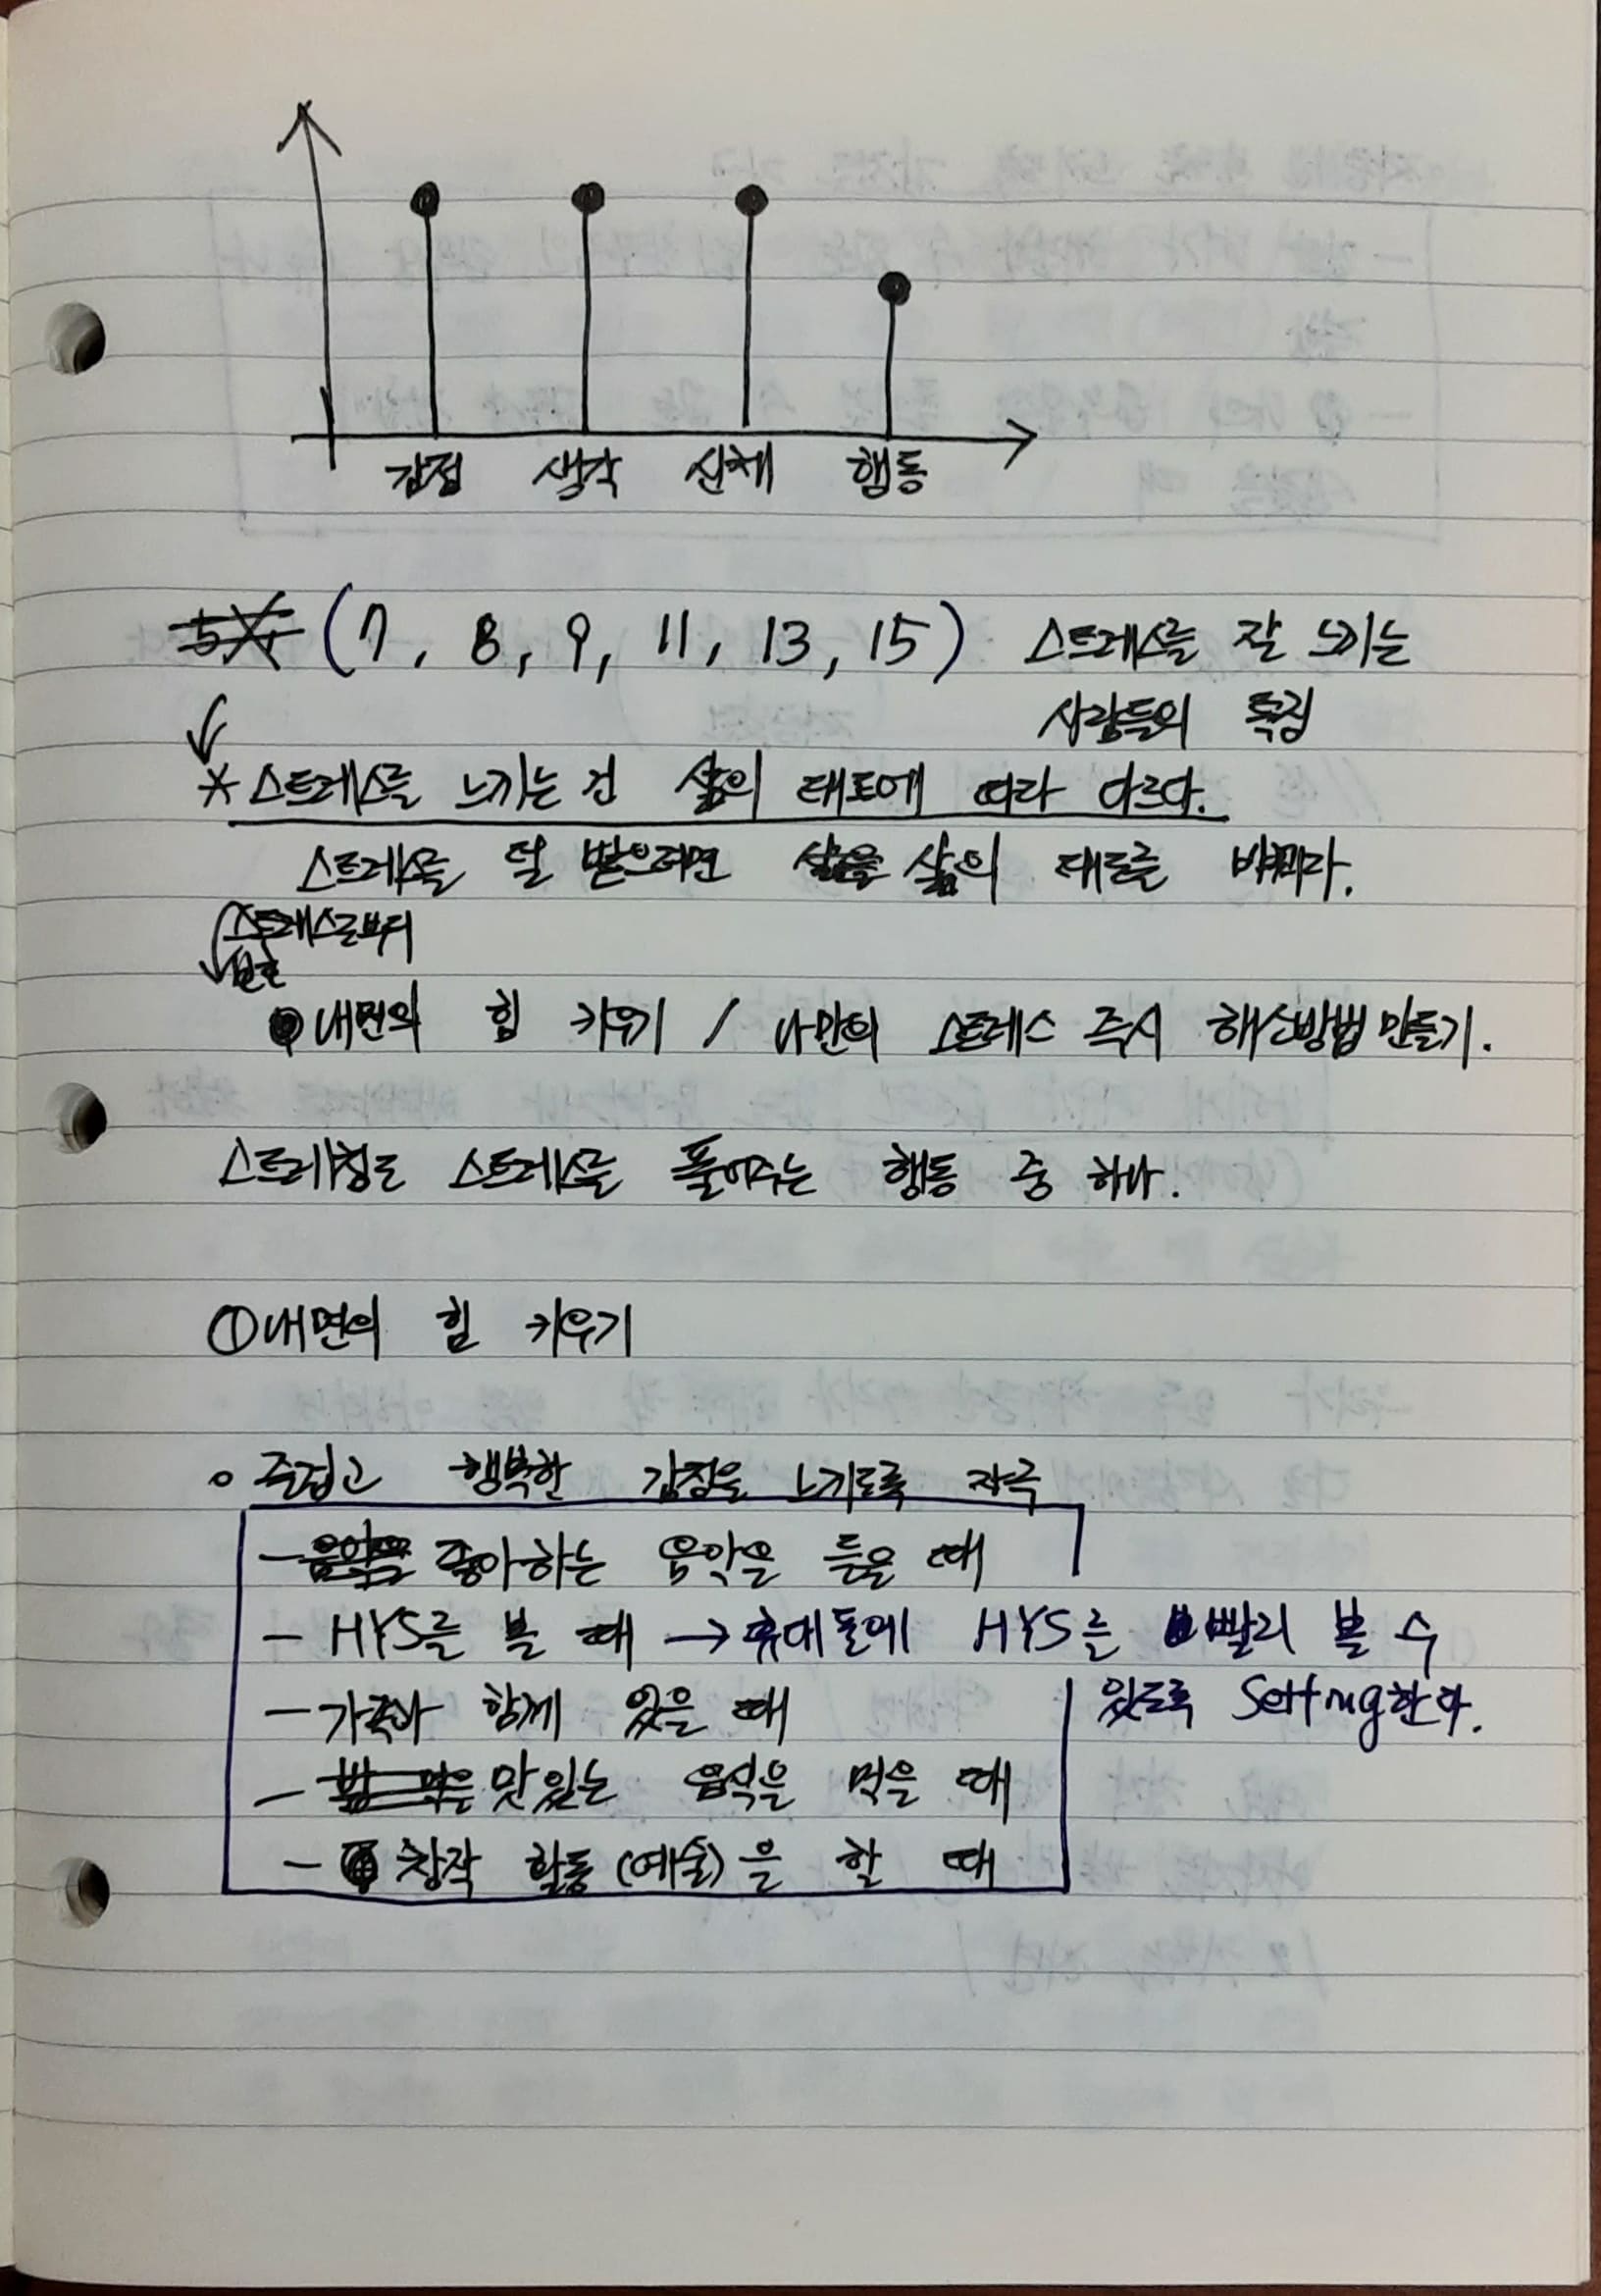 감정 생각 신체 행동
(7, 8, 9, 11, 13, 15) 스트레스를 잘 느끼는
사람들의 특징
* 스트레스를 느끼는 건 삶의 태도에 따라 다르다.
스트레스를 덜 받으려면 삶의 태도를 바꿔라.
스트레스로부터
보호
내면의 힘 키우기 / 나만의 스트레스 즉시 해소방법 만들기.
스트레칭도 스트레스를 풀어주는 행동 중 하나.
① 내면의 힘 키우기
◦ 즐겁고 행복한 감정을 느끼도록 자극
- 좋아하는 음악을 들을 때
- HYS를 볼 때 → 휴대폰에 HYS를 빨리 볼 수
있도록 Setting한다.
- 가족과 함께 있을 때
- 맛있는 음식을 먹을 때
- 창작 활동(예술)을 할 때